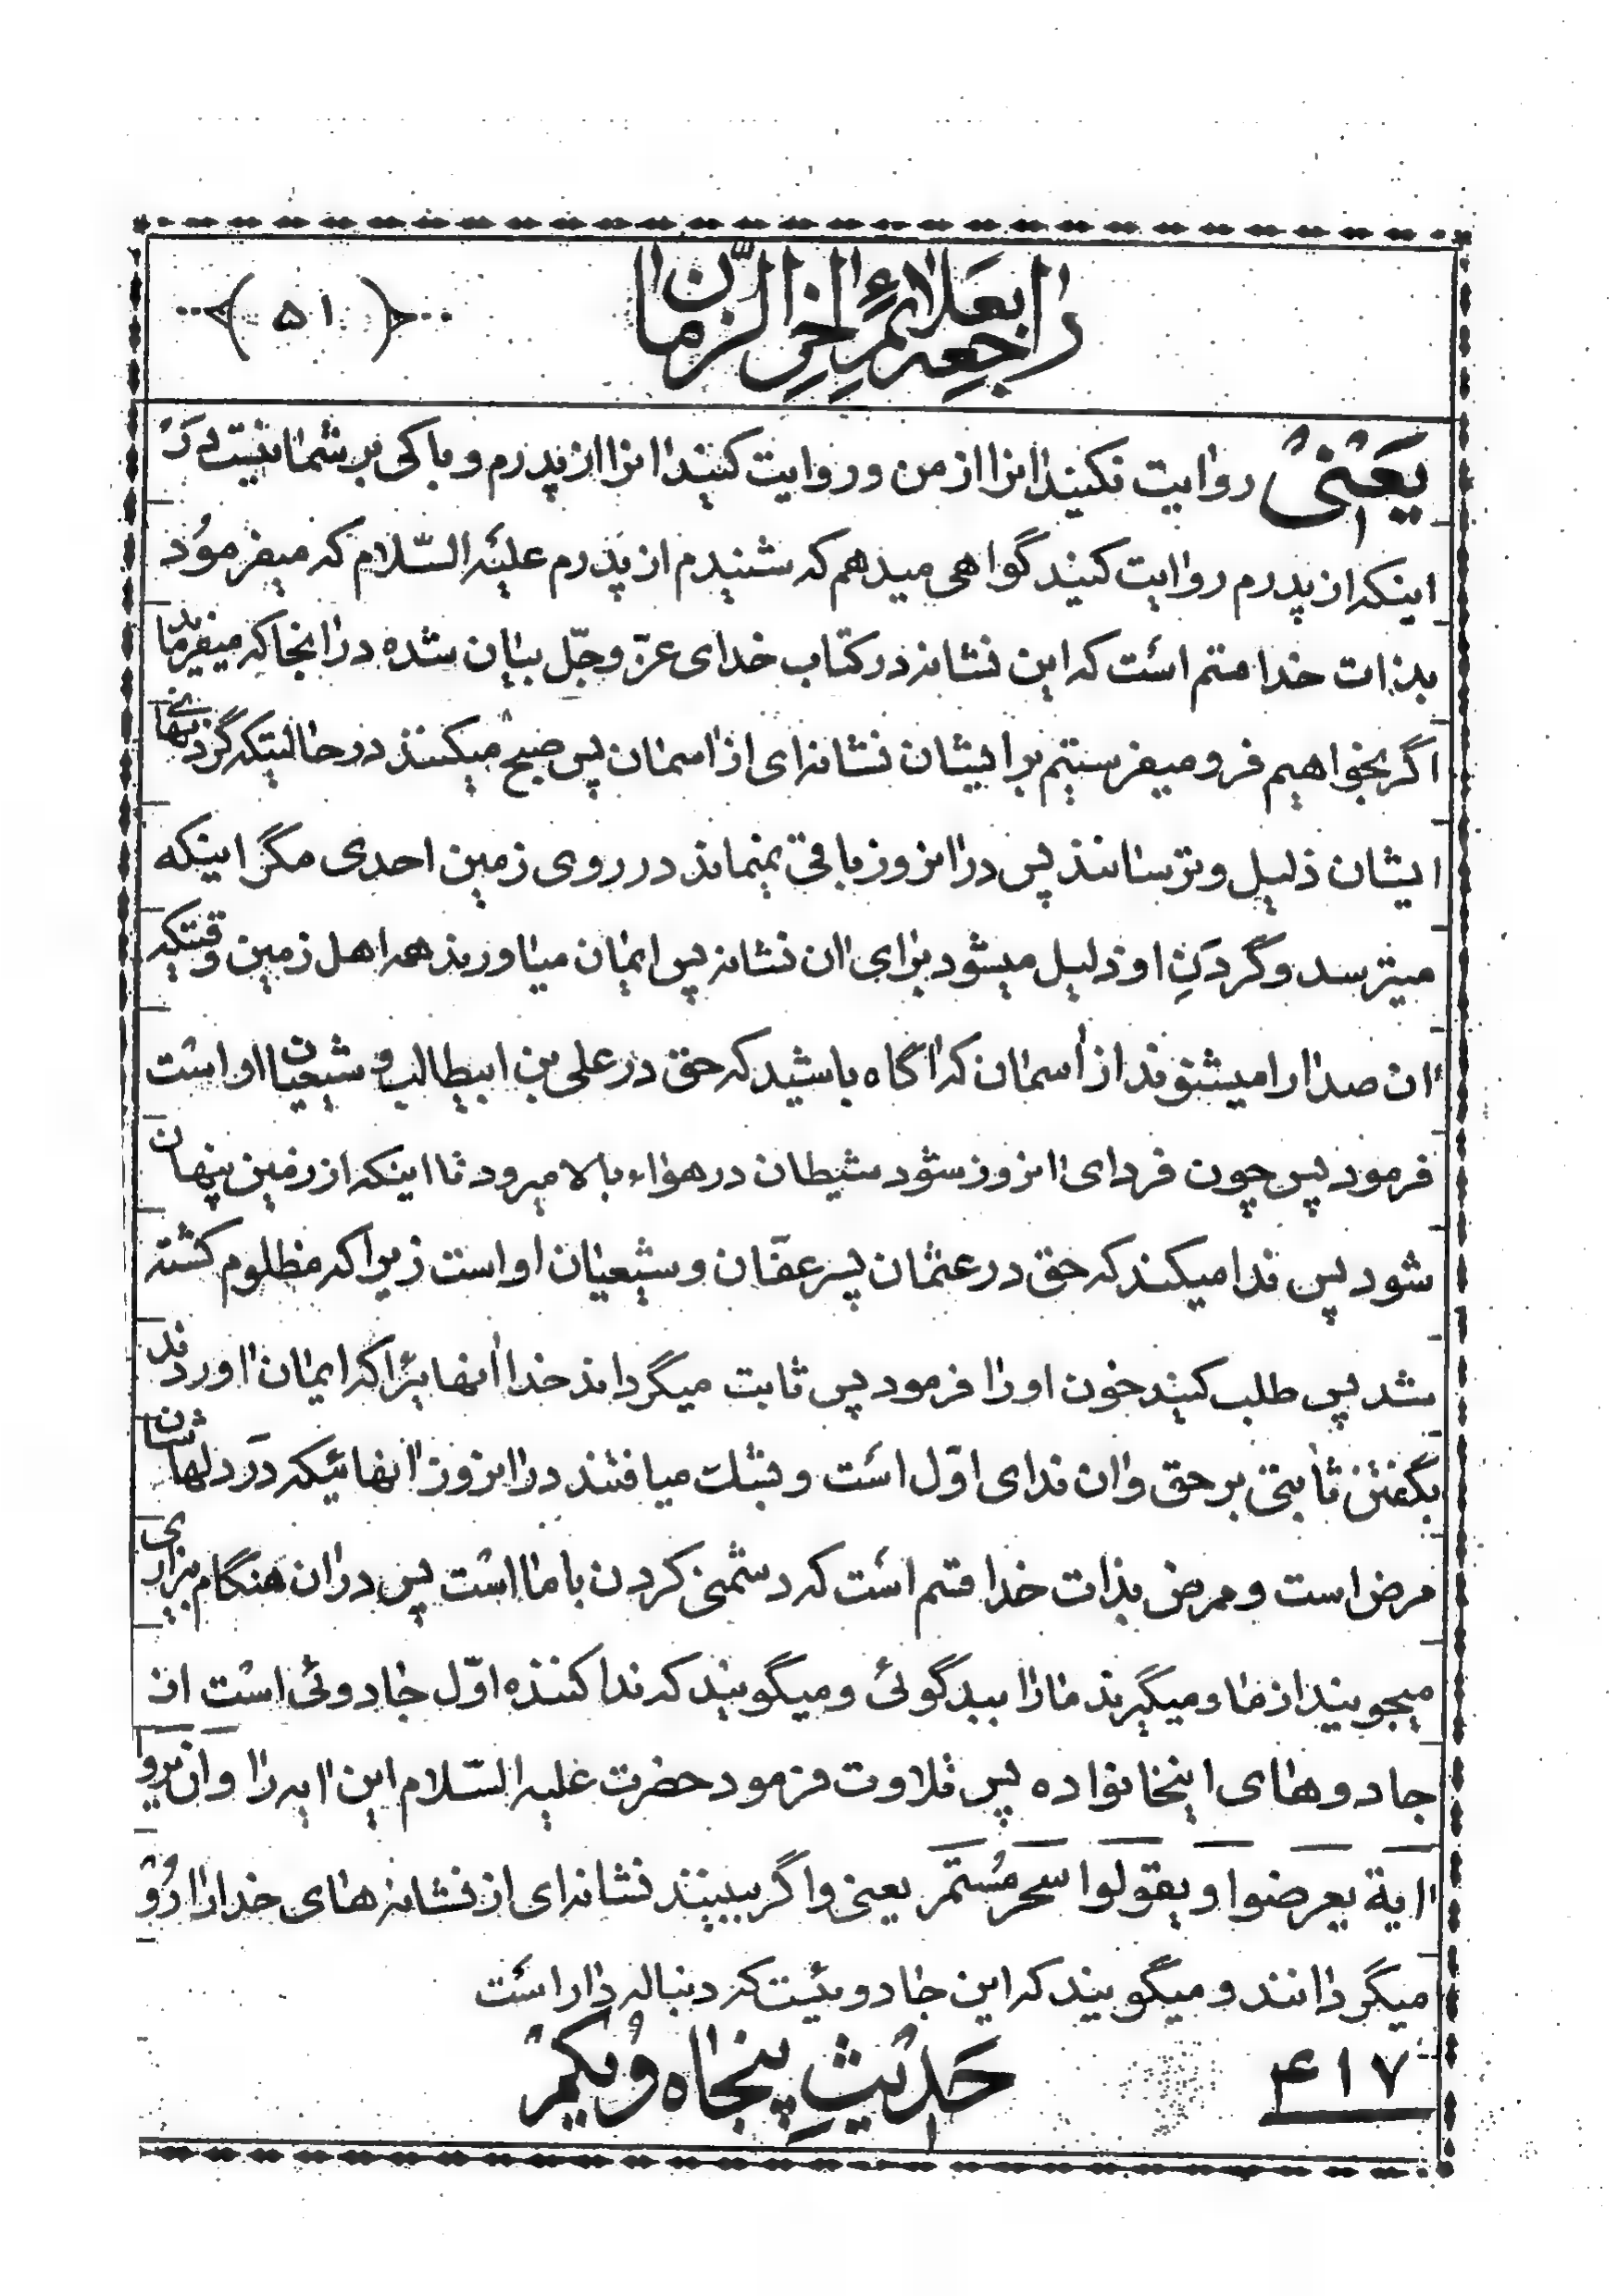 راجعه بعلائم اخر الزمان
(۵۱)
یعنی روایت نکنید انرا از من و روایت کنید انرا از پدرم و باکی بر شما نیست در
اینکه از پدرم روایت کنید گواهی میدهم که شنیدم از پدرم علیه السّلام که میفرمود
بذات خدا قسم است که این نشانه در کتاب خدای عزّ و جلّ بیان شده در انجا که میفرماید
اگر بخواهیم فرو میفرستیم بر ایشان نشانه‌ای از اسمان پس صبح میکنند در حالتیکه گردنهای
ایشان ذلیل و ترسانند پس در انروز باقی نمیماند در روی زمین احدی مگر اینکه
میترسد و گردنِ او ذلیل میشود برای ان نشانه پس ایمان میاورند همه اهل زمین وقتیکه
ان صدا را میشنوند از اسمان که اگاه باشید که حق در علی بن ابیطالب و شیعیان او است
فرمود پس چون فردای انروز شود شیطان در هواء بالا میرود تا اینکه از زمین پنهان
شود پس ندا میکند که حق در عثمان پسر عفّان و شیعیان او است زیرا که مظلوم کشته
شد پس طلب کنید خون او را فرمود پس ثابت میگرداند خدا انهائیرا که ایمان اوردند
بگفتن ثابتی بر حق و ان ندای اوّل است و بشک میافتند در انروز انهائیکه در دلهاشان
مرض است و مرض بذات خدا قسم است که دشمنی کردن با ما است پس در ان هنگام بیزاری
میجویند از ما و میگیرند ما را ببدگوئی و میگویند که ندا کننده اوّل جادوئی است از
جادوهای اینخانواده پس تلاوت فرمود حضرت علیه السّلام این ایه را و ان یروا
ایة یعرضوا و یقولوا سحر مُستَمر یعنی و اگر ببینند نشانه‌ای از نشانه‌های خدا را رو
میگردانند و میگویند که این جادوئیست که دنباله دار است
۴۱۷ حَدیثِ پنجاه و یکم